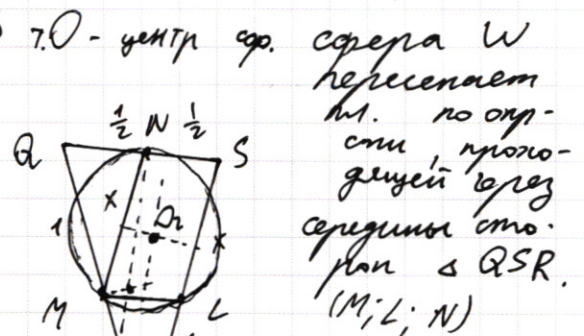 т.О - центр сф. сфера W
пересекает
пл. по окр-
сти, прохо-
дящей через
середины сто-
рон Δ QSR.
(M; L; N)
1/2 N 1/2
Q S
x
1 O₂ x
M L